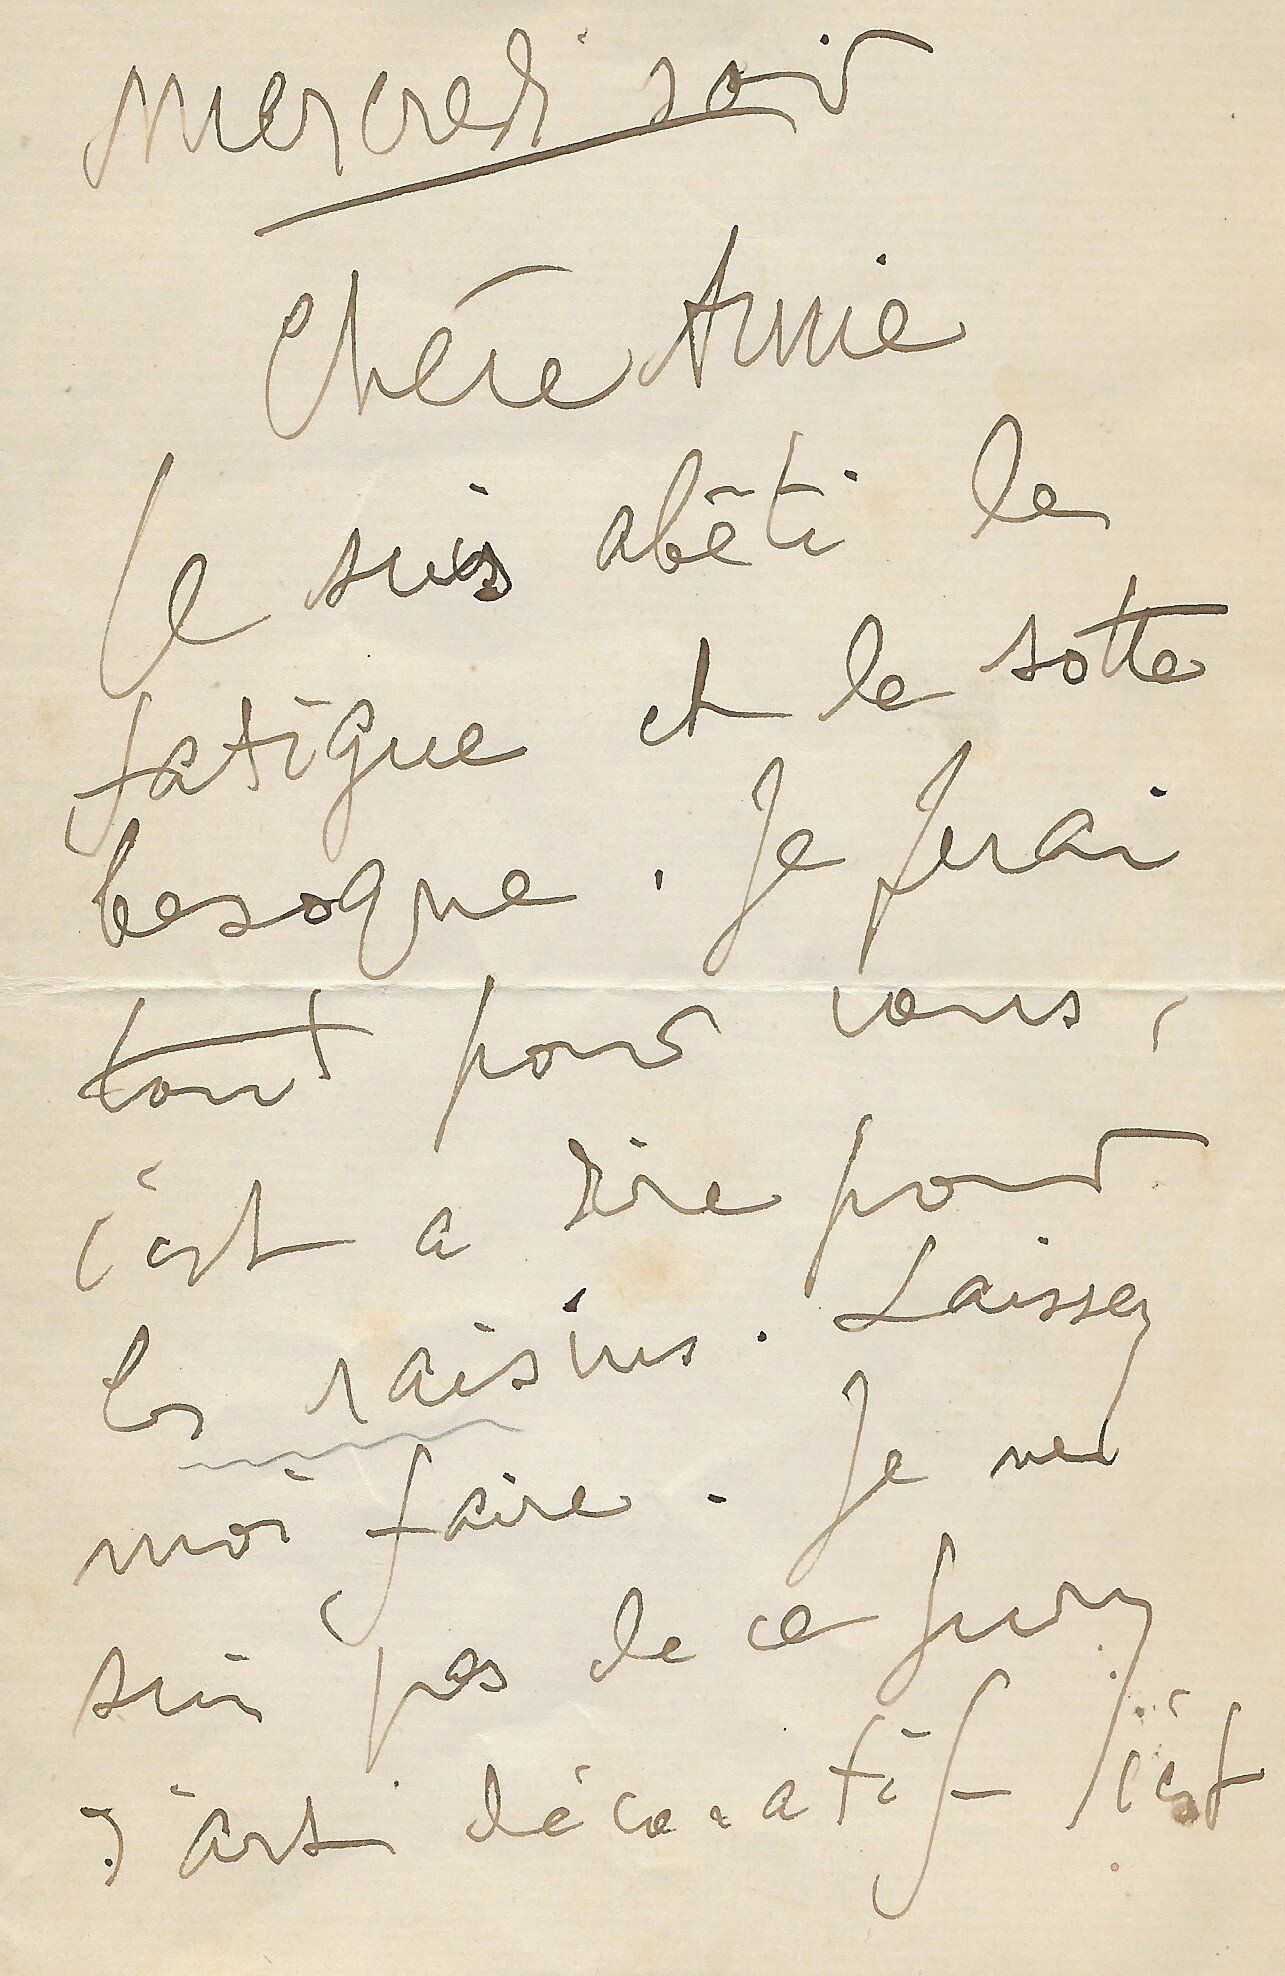 Mercredi soir
Chère Amie
Je suis abêti de
fatigue et de sotte
besogne. Je ferai
tout pour vous,
c'est à dire pour
les raisins. Laissez
moi faire. Je ne
suis pas de ce jury
d'art décoratif c'est